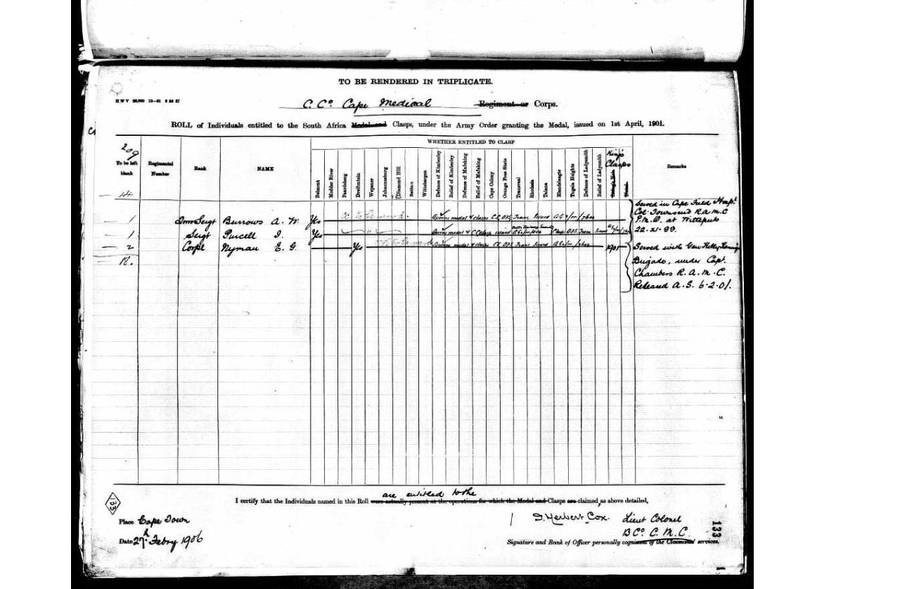 TO BE RENDERED IN TRIPLICATE.
C. Co. Cape Medical Regiment or Corps.
ROLL of Individuals entitled to the South Africa Medal and Clasps, under the Army Order granting the Medal, issued on 1st April, 1901.
209
WHETHER ENTITLED TO CLASP
To be left blank
Regimental Number
Rank
NAME
Belmont
Modder River
Paardeberg
Driefontein
Wepener
Johannesburg
Diamond Hill
Belfast
Wittebergen
Defence of Kimberley
Relief of Kimberley
Defence of Mafeking
Relief of Mafeking
Cape Colony
Orange Free State
Transvaal
Rhodesia
Talana
Elandslaagte
Tugela Heights
Defence of Ladysmith
Relief of Ladysmith
King's Clasps
Remarks
1 Burrows A. W. Yes
1 Sergt Purcell Yes
2 Corpl Nyman E. G. Yes 1901
Served in Cape Field Hospl.
Col. Townsend R.A.M.C
P.M.O. at Witteputs
22.XI.99.
Served with Genl Kelly Kenny's
Brigade, under Capt.
Chambers R.A.M.C.
Released A.S. 6.2.01.
are entitled to the
I certify that the Individuals named in this Roll were actually present at the operations for which the Medal and Clasps are claimed, as above detailed,
Place Cape Town
Date 27th Febry 1906
Herbert Cox Lieut Colonel
B Co. C.M.C.
Signature and Rank of Officer personally cognizant of the Claimants' services.
133